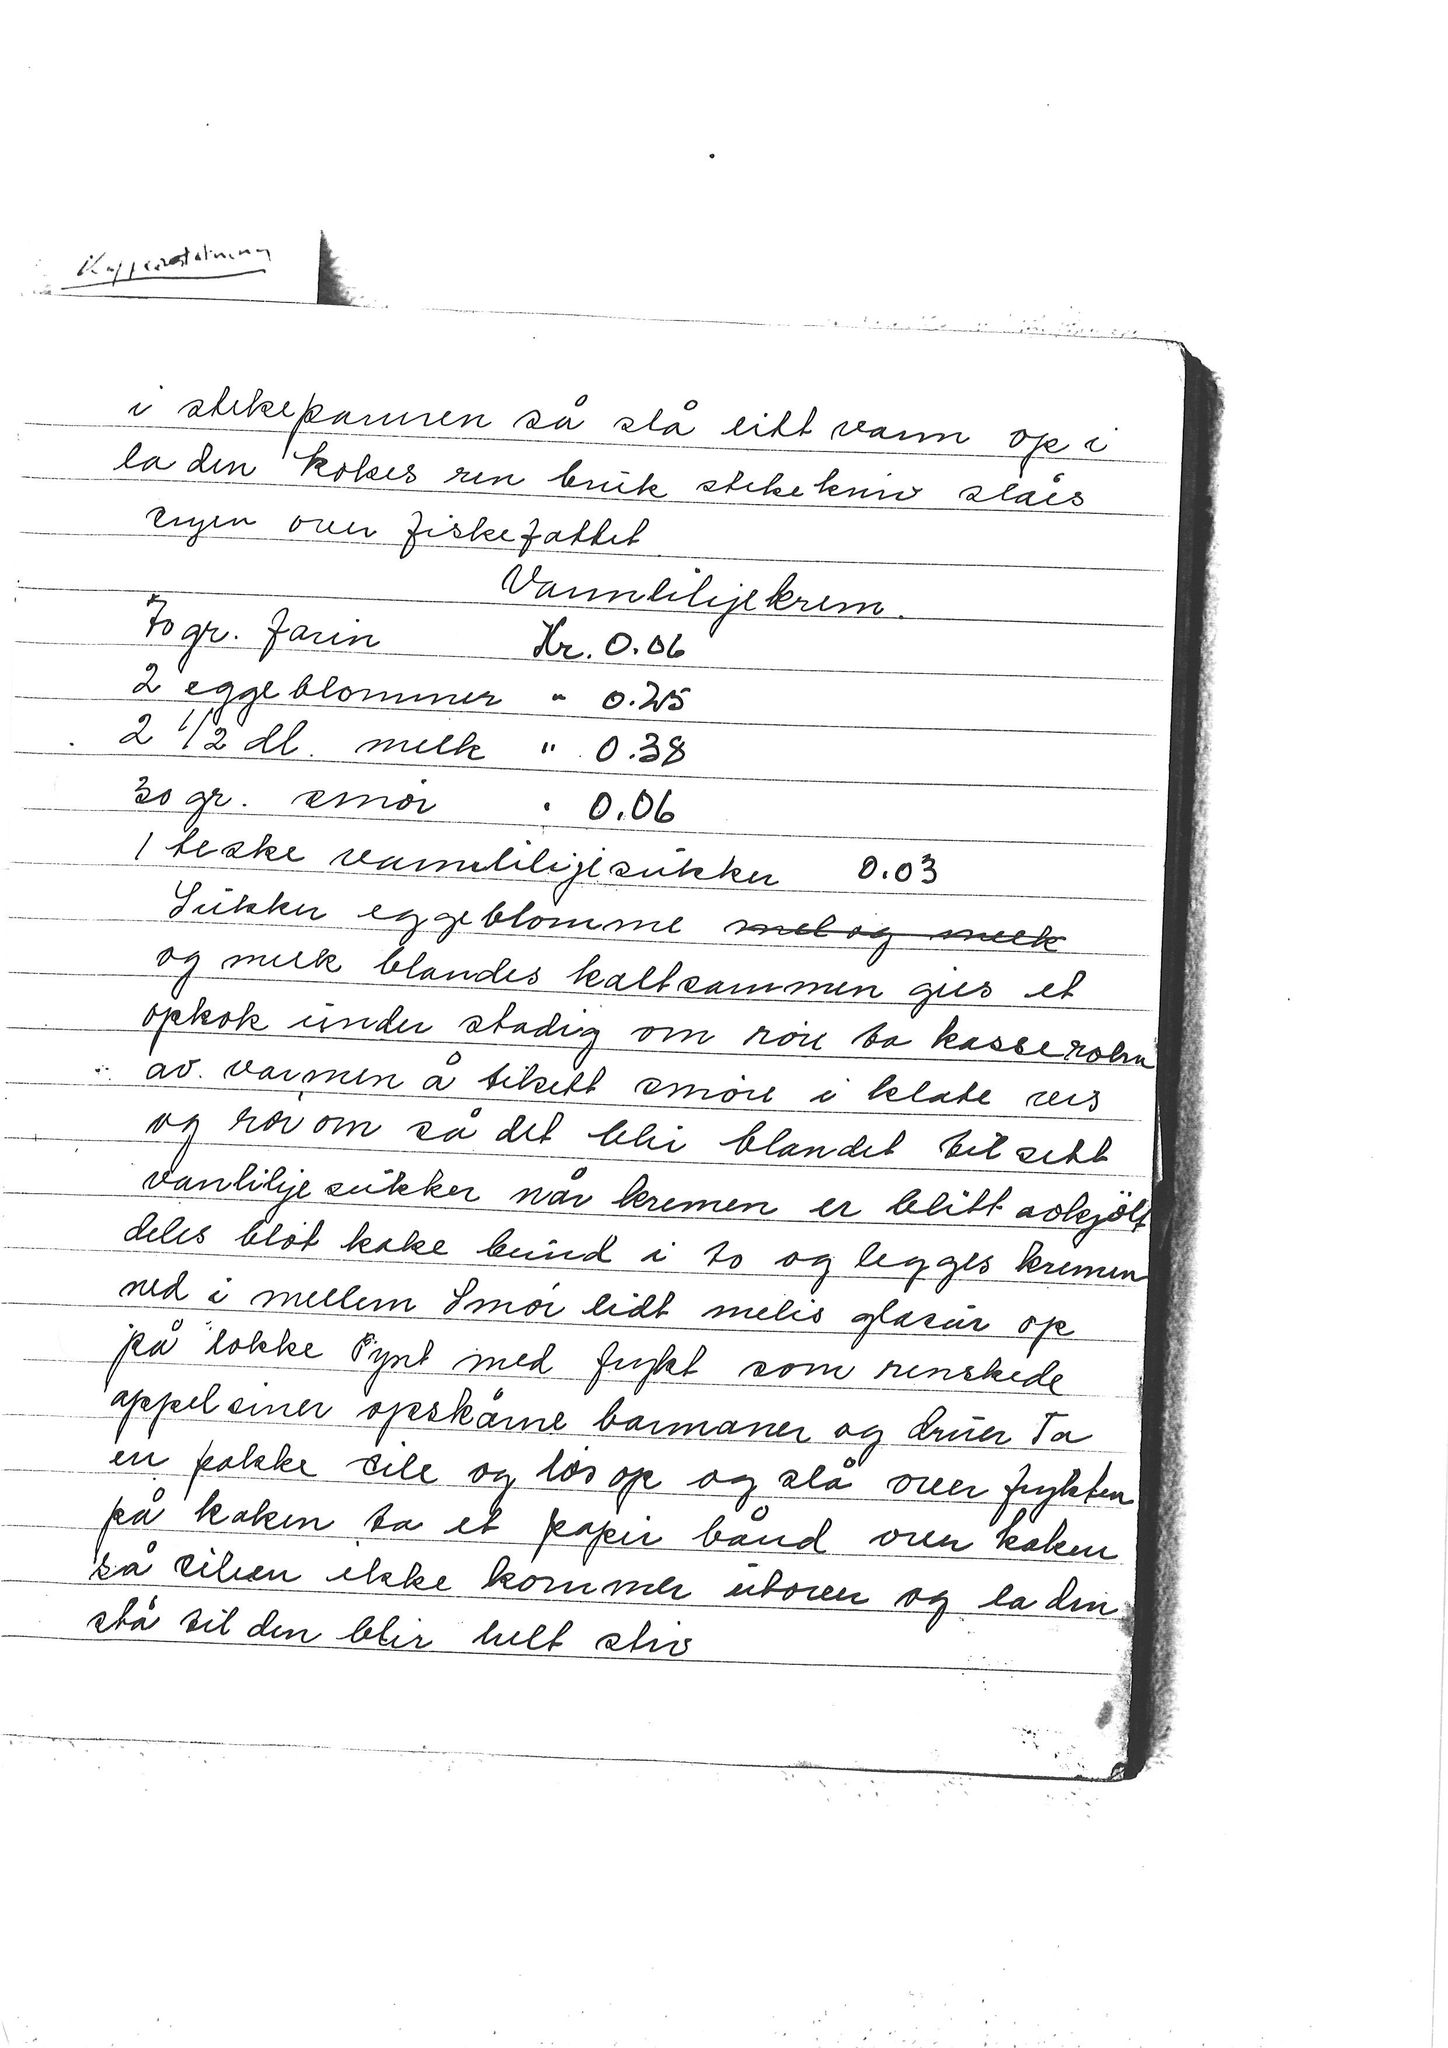 i stekepannen så slå litt vann op i
la den kokes ren bruk stekekniv slåes
over fiskefattet
Vannliljekrem.
70 gr. farin Kr. 0.06
2 eggeblommer " 0.25
2 1/2 dl. melk " 0.38
30 gr. smör " 0.06
1 teske vannliljesukker 0.03
Sukker eggeblomme mel og melk
og melk blandes kaltsammen gies et
opkok under stadig om röre ta kasserolen
av varmen å tilsett smöre i klate vis
og rör om så det bli blandet til sett
vanlilje sukker når kremen er blitt avkjölt
deles blöt kake bund i to og legges kremen
ned i mellem Smör lidt melis glasur op
på lokke Pynt med frykt som renskede
appelsiner opskårne bannaner og druer Ta
en pakke sile og lös op og slå over frykten
på kaken ta et papir bånd over kaken
så sileen ikke kommer utover og la den
stå til den blir helt stiv